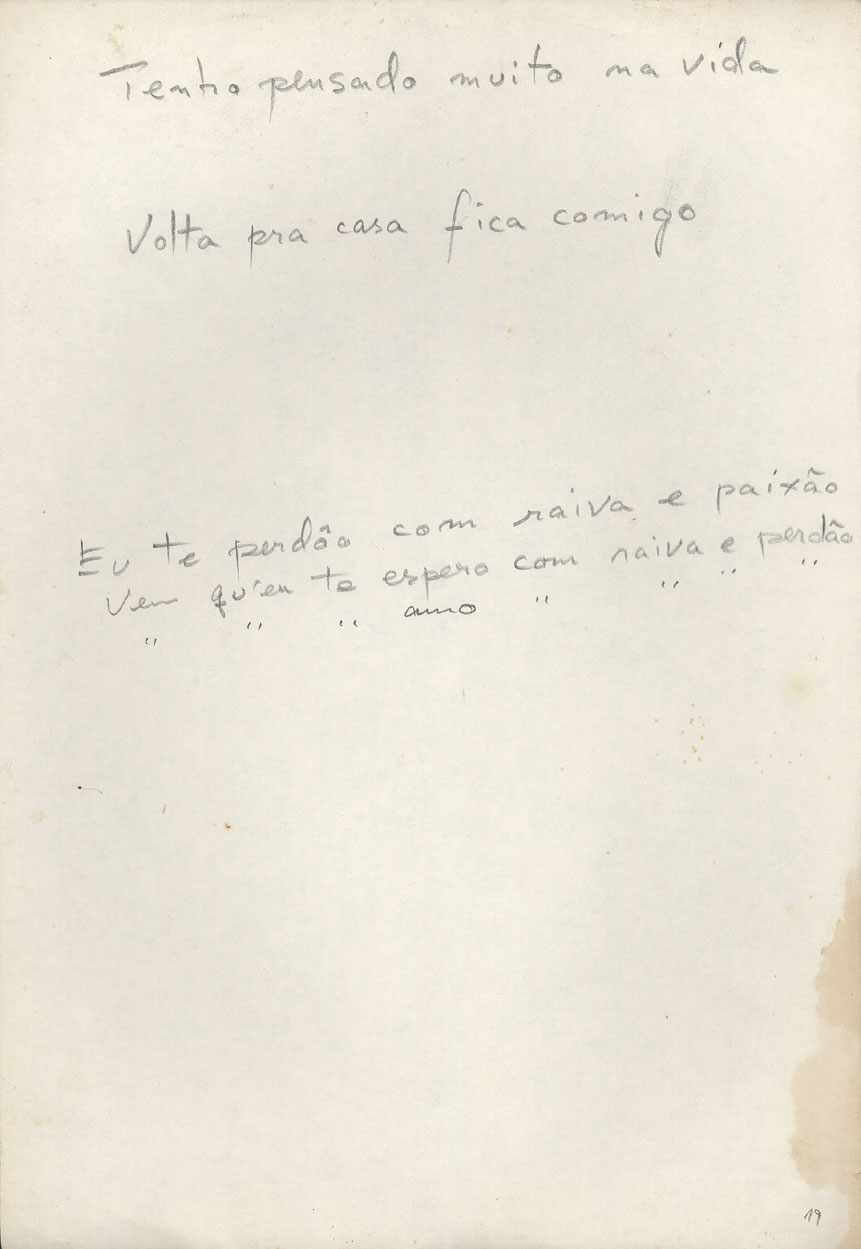 Tenho pensado muito na vida
Volta pra casa fica comigo
Eu te perdôo com raiva e paixão
Vem qu'eu te espero com raiva e perdão
" " " amo " " " "
19